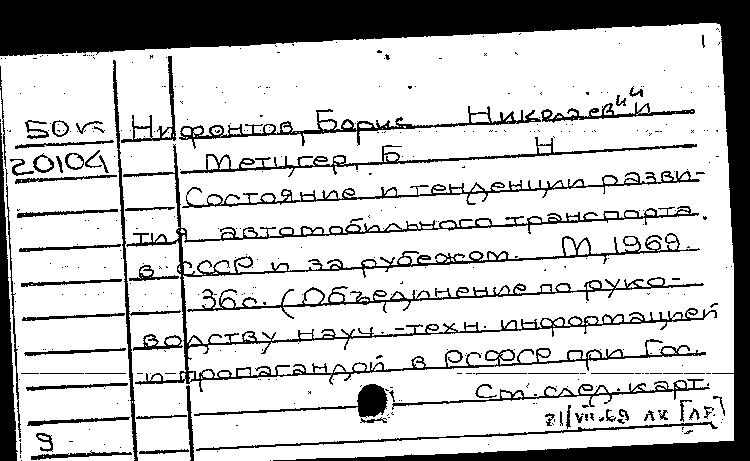 1
50к Нифонтов, Борис Николаевич
20104 Метцгер, Б Н
Состояние и тенденции разви-
тия автомобильного транспорта.
в СССР и за рубежом. М, 1969.
36с. (Объединение по руко-
водству науч.-техн. информацией
и пропагандой в РСФСР при Гос.
См. след. карт.
9 21/VII.69 лк [ЛР]